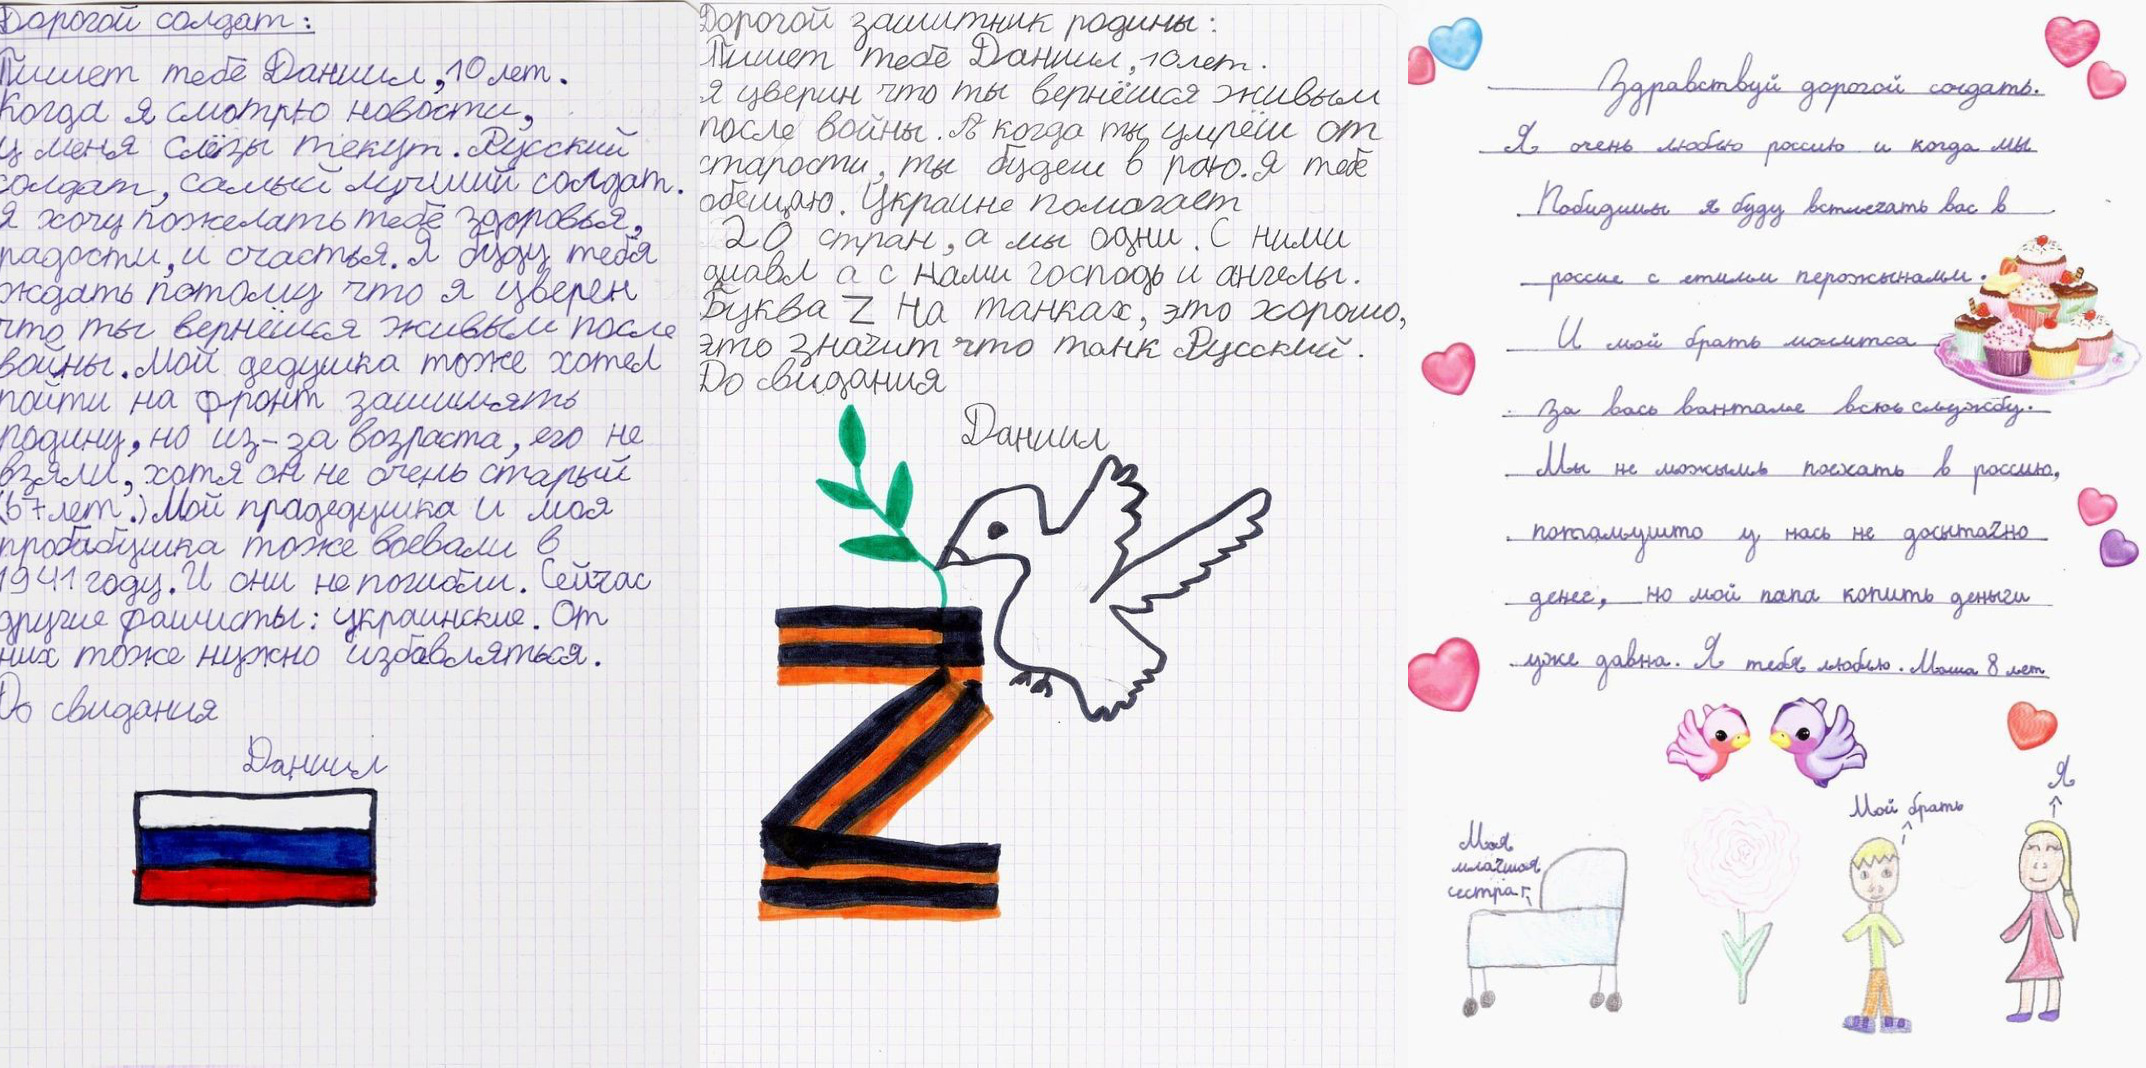 Дорогой солдат:
Пишет тебе Даниил, 10 лет.
Когда я смотрю новости,
у меня слёзы текут. Русский
солдат, самый лучший солдат.
Я хочу пожелать тебе здоровья,
радости, и счастья. Я буду тебя
ждать потому что я уверен
что ты вернёшся живым после
войны. Мой дедушка тоже хотел
пойти на фронт защищять
родину, но из-за возраста, его не
взяли, хотя он не очень старый
(67 лет.) Мой прадедушка и моя
пробабушка тоже воевали в
1941 году. И они не погибли. Сейчас
другие фашисты: украинские. От
них тоже нужно избавляться.
До свидания
Даниил
Дорогой защитник родины:
Пишет тебе Даниил, 10 лет.
Я уверин что ты вернёшся живым
после войны. А когда ты умрёш от
старости, ты будеш в раю. Я тебе
обещаю. Украине помогает
20 стран, а мы одни. С ними
диавл а с нами господь и ангелы.
Буква Z на танках, это хорошо,
это значит что танк Русский.
До свидания
Даниил
Здравствуй дорогой солдать.
Я очень люблю россию и когда мы
Пабидимы я буду встлечать вас в
россие с етими перожынами.
И мой брать молитса
за вась вантале всюь службу.
Мы не можымь поехать в россию,
потамушто у нась не досытачно
денег, но мой папа копить деньги
уже давна. Я тебя люблю. Маша 8 лет
Моя
млачшая
сестра
Мой брать
Я